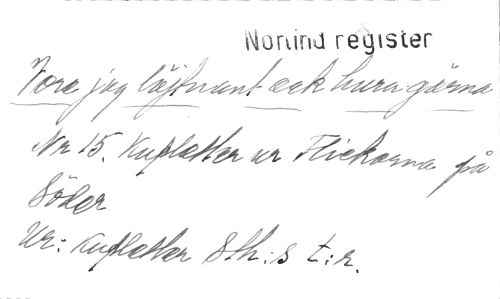 Norlind register
Vore jag löjtnant ack hura gärna
Nr 15. Kupletter ur Flickorna på
Söder
Ur: Kupletter Sth:s t:r.